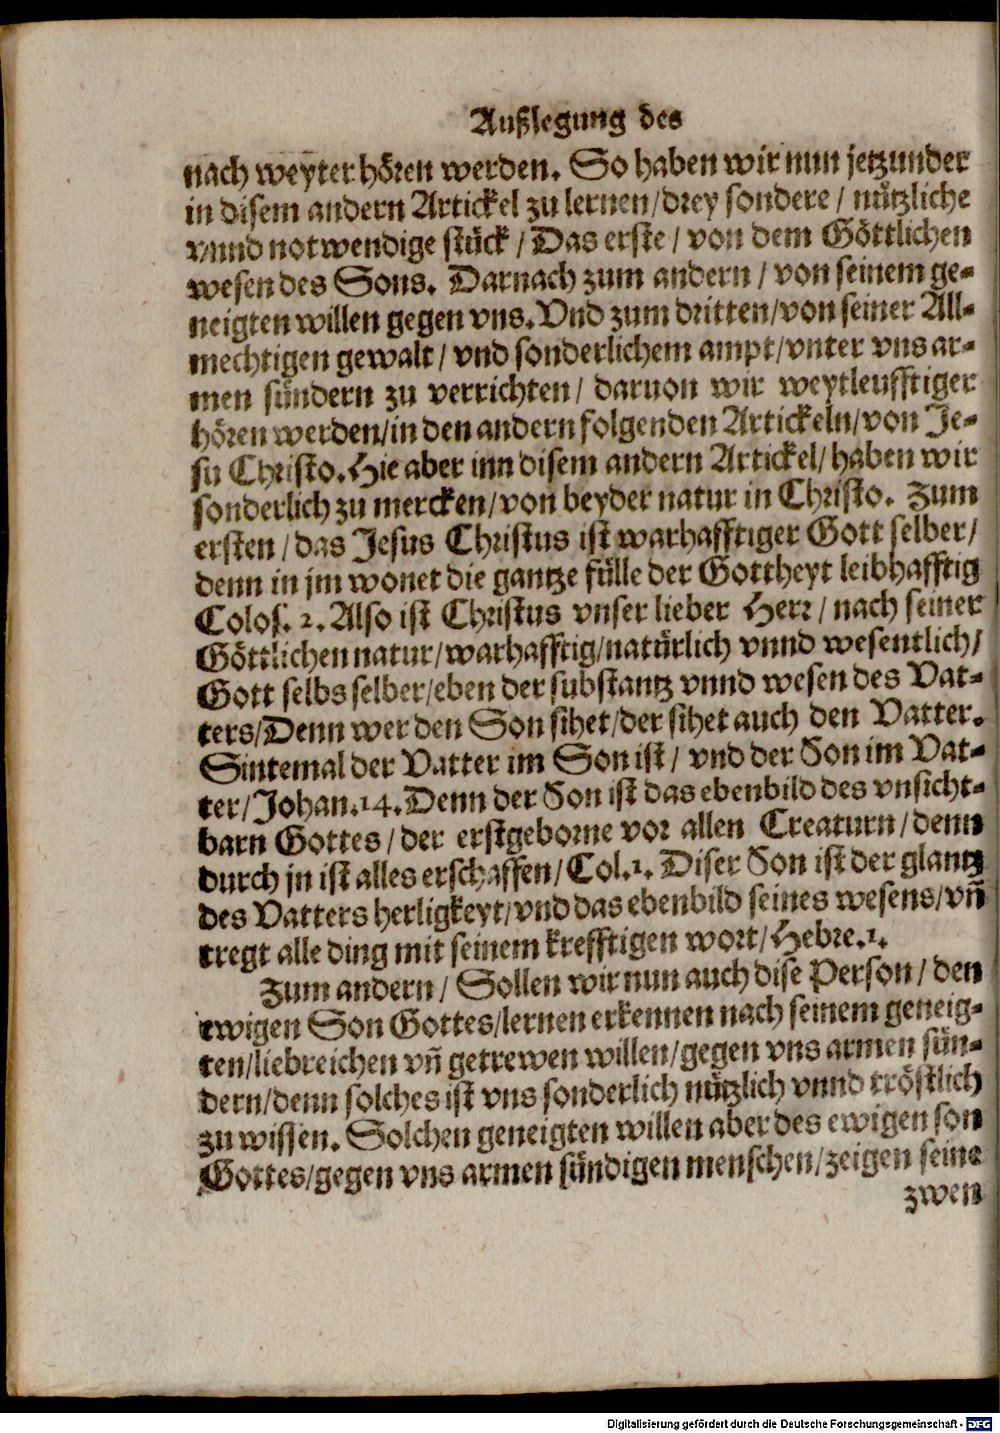 Außlegung des
nach weyter hören werden. So haben wir nun jetzunder
in disem andern Artickel zu lernen/drey sondere/ nützliche
vnnd notwendige stück/ Das erste/ von dem Göttlichen
wesen des Sons. Darnach zum andern/ von seinem ge-
neigten willen gegen vns. Vnd zum dritten/von seiner All-
mechtigen gewalt/ vnd sonderlichem ampt/vnter vns ar-
men sündern zu verrichten/ daruon wir weytleufftiger
hören werden/in den andern folgenden Artickeln/von Je-
su Christo. Hie aber inn disem andern Artickel/ haben wir
sonderlich zu mercken/von beyder natur in Christo. Zum
ersten/das Jesus Christus ist warhafftiger Gott selber/
denn in jm wonet die gantze fülle der Gottheyt leibhafftig
Colos. 2. Also ist Christus vnser lieber Herr/ nach seiner
Göttlichen natur/warhafftig/natürlich vnnd wesentlich/
Gott selbs selber/eben der substantz vnnd wesen des Vat-
ters/Denn wer den Son sihet/der sihet auch den Vatter.
Sintemal der Vatter im Son ist/ vnd der Son im Vat-
ter/Johan.14. Denn der Son ist das ebenbild des vnsicht-
barn Gottes/der erstgeborne vor allen Creaturn/denn
durch jn ist alles erschaffen/Col.1. Diser Son ist der glantz
des Vatters herligkeyt/vnd das ebenbild seines wesens/vñ
tregt alle ding mit seinem krefftigen wort/Hebre.1.
Zum andern/ Sollen wir nun auch dise Person/ den
ewigen Son Gottes/lernen erkennen nach seinem geneig-
ten/liebreichen vñ getrewen willen/gegen vns armen sün-
dern/denn solches ist vns sonderlich nützlich vnnd tröstlich
zu wissen. Solchen geneigten willen aber des ewigen son
Gottes/gegen vns armen sündigen menschen/zeigen seine
zwen
Digitalisierung gefördert durch die Deutsche Forschungsgemeinschaft - DFG